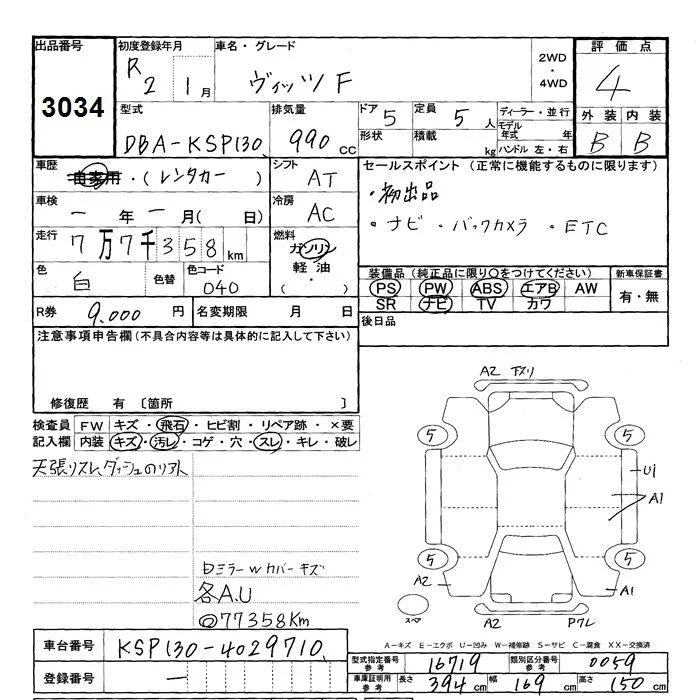 出品番号 初度登録年月 車名・グレード 2WD・4WD 評価点
3034 R2 1月 ヴィッツF 4
型式 排気量 ドア 5 定員 5人 ディーラー・並行 外装 内装
DBA-KSP130 990cc 形状 積載 kg モデル年式 年 B B
ハンドル 左・右
車歴 自家用・(レンタカー) シフト AT セールスポイント (正常に機能するものに限ります)
車検 ー年ー月( 日) 冷房 AC ・初出品
走行 7万7千358km 燃料 ガソリン ・ナビ・バックカメラ・ETC
軽油・( )
色 白 色替 色コード 040 装備品(純正品に限り○をつけてください) 新車保証書
PS PW ABS エアB AW 有・無
SR ナビ TV カワ
R券 9.000円 名変期限 月 日 後日品
注意事項申告欄(不具合内容等は具体的に記入して下さい)
修復歴 有 〔箇所 〕
検査員 FW キズ・飛石・ヒビ割・リペア跡・×要
記入欄 内装 キズ・汚レ・コゲ・穴・スレ・キレ・破レ
天張リスレ ダッシュのリアト
A2 下ズリ
5 5
U1
A1
5 5
A2 A1
スペア A2 Pクレ
ミラーwカバーキズ
各A.U
@77358Km
A-キズ E-エクボ U-凹み W-補修跡 S-サビ C-腐食 XX-交換済
車台番号 KSP130-4029710 型式指定番号 参考 16719 類別区分番号 参考 0059
登録番号 ー 車庫証明用 参考 長さ 394cm 幅 169cm 高さ 150cm